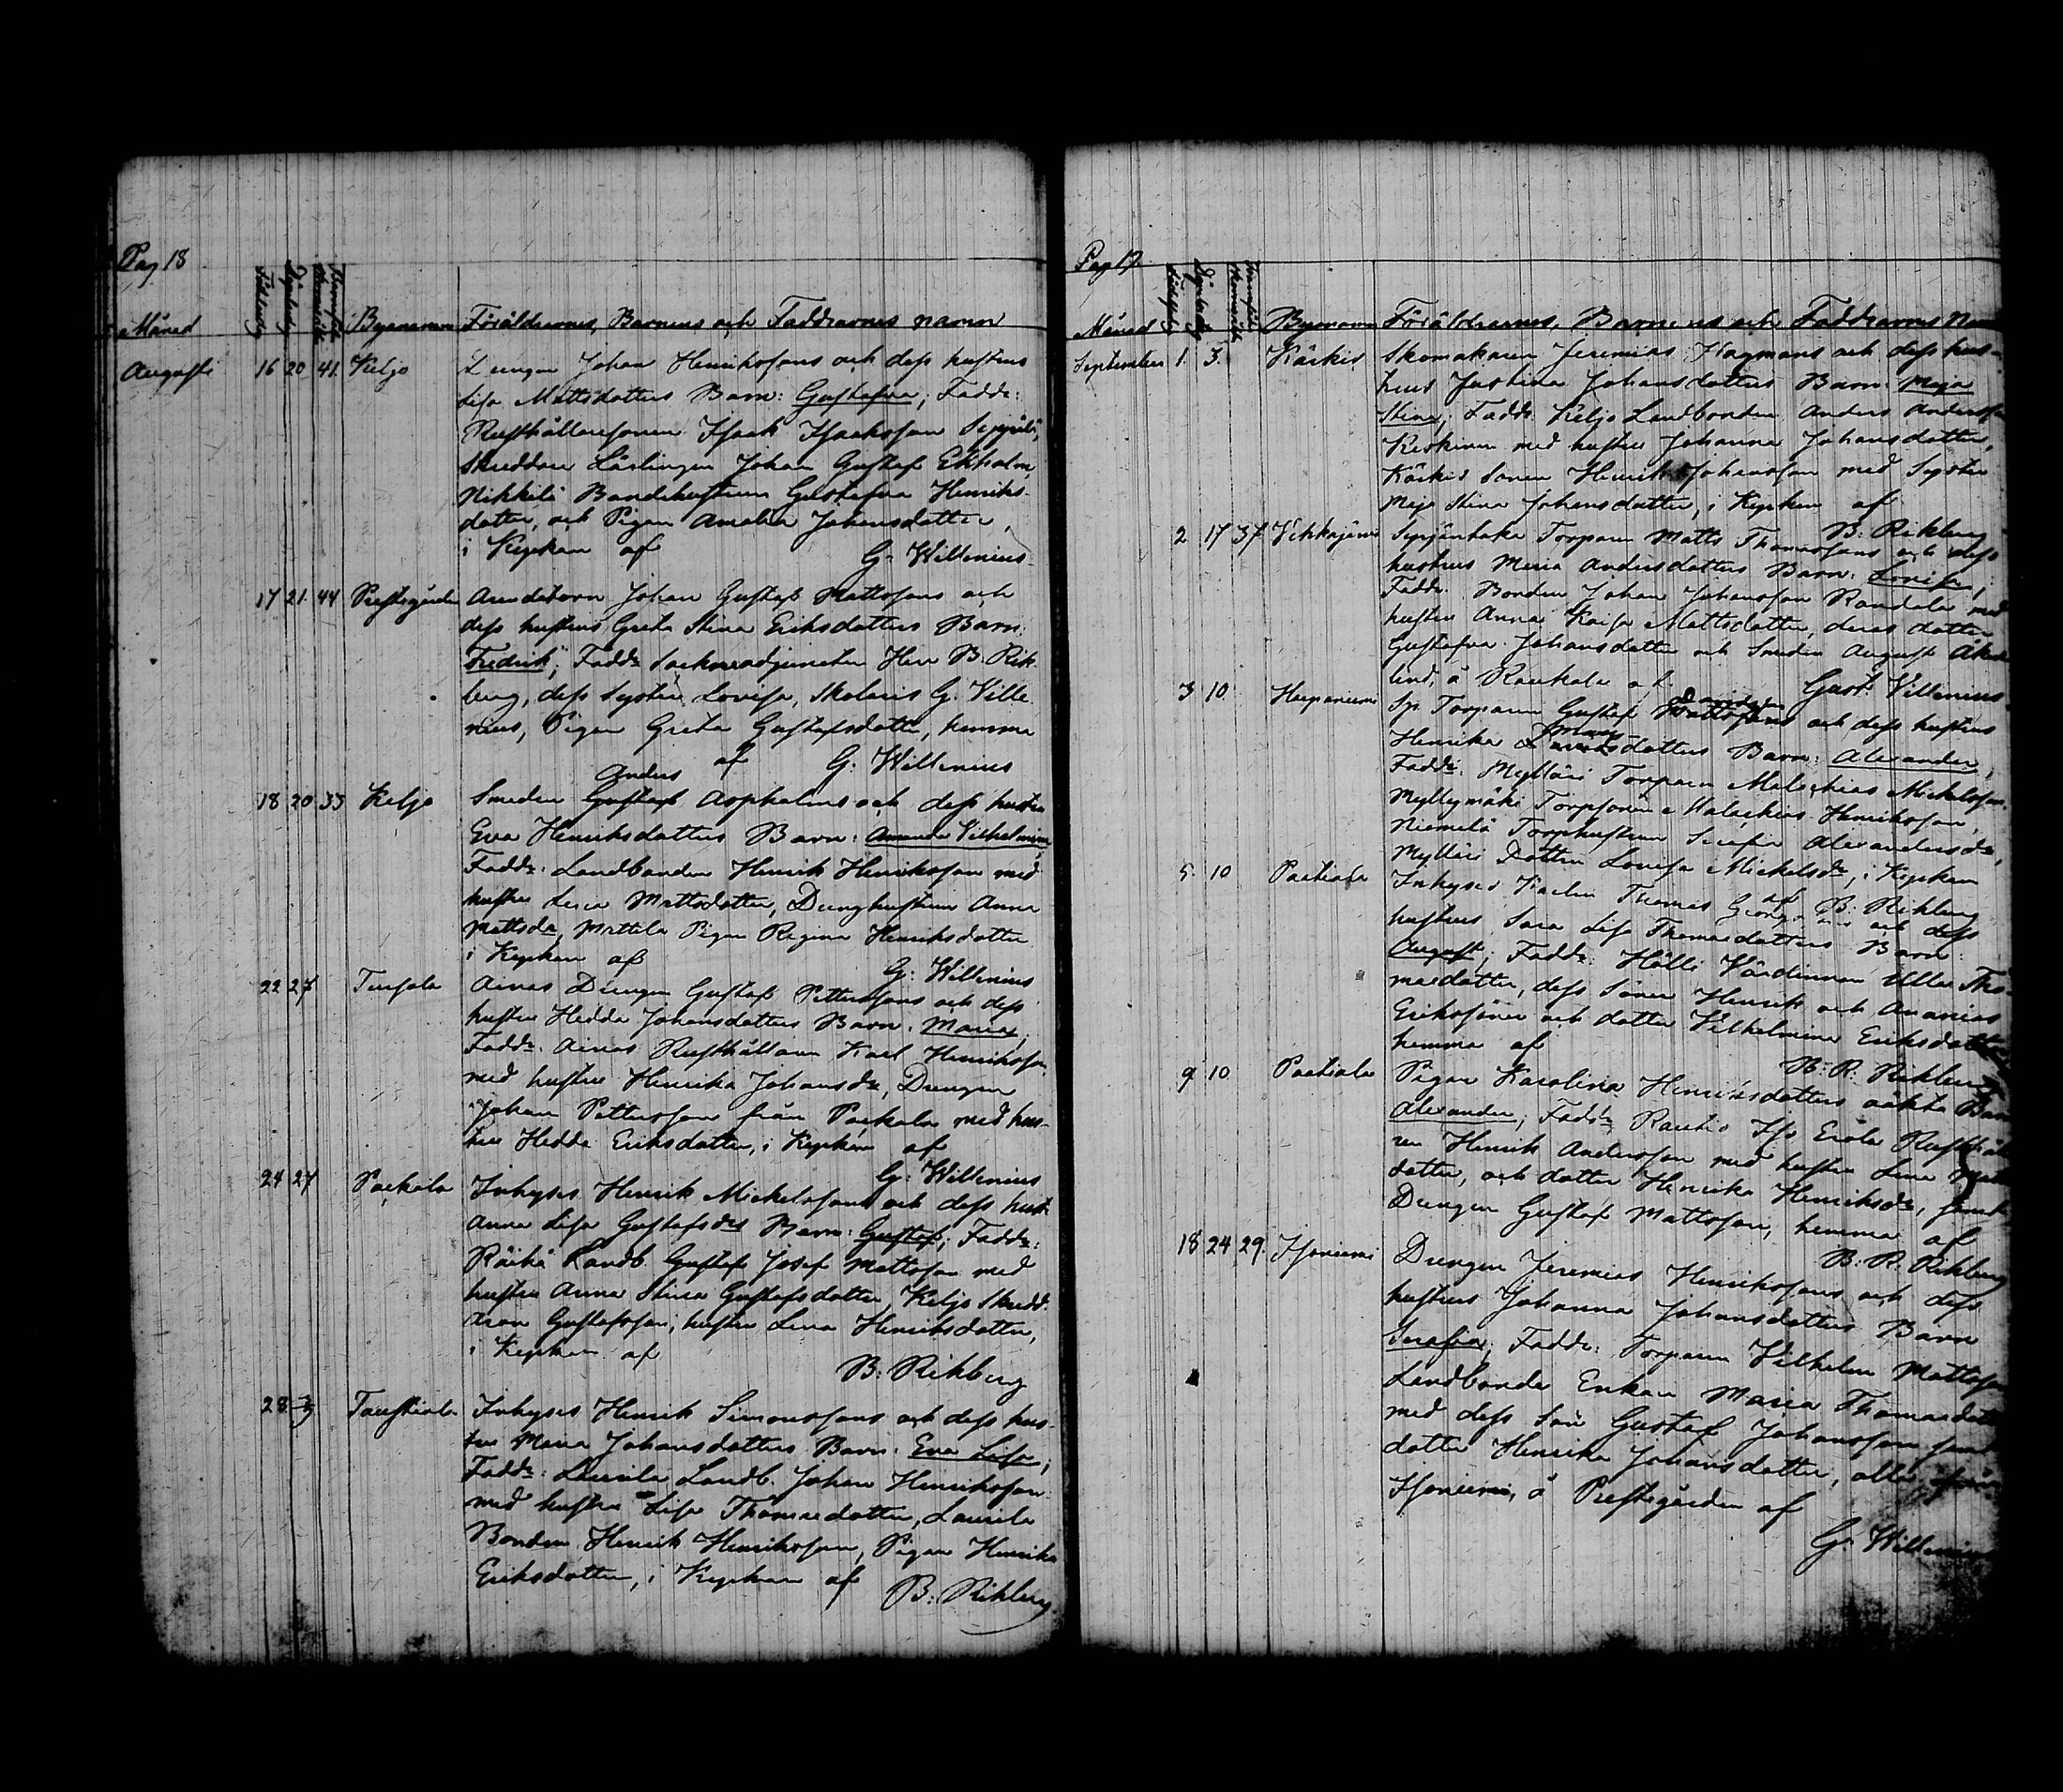 Pag 18
Månad Födelsedag Döpelsedag Byanamn Föräldrarnes, Barnens och Faddrarnes namn
Augusti 16 20 41. Keljo Drengen Johan Henrikssons och dess hustrus
Lisa Mattsdotters Barn: Gustafva; Fadd:
Rusthållaresonen Isaak Isaaksson Seppälä,
Skreddare Lärlingen Johan Gustaf Ekholm,
Nikkilä Bondehustrun Gustafva Henriks-
dotter, och Pigan Amalia Johansdotter,
i Kyrkan af
G. Willenius
17 21. 44 Prestegården Johan Gustaf Mattssons och
dess hustrus Greta Stina Eriksdotters Barn:
Fredrik; Fadd: Sockneadjuncten Herr B. Rik-
berg, dess Syster Lovisa, Skolaris G. Wille
nius, Pigan Greta Gustafsdotter, hemma
af G. Willenius
Anders
18 20 33 Keljo Smeden Gustaf Aspholms och dess hustru
Eva Henriksdotters Barn: Amanda Vilhelmina;
Fadd: Landbonden Henrik Henriksson med
hustru Lena Mattsdotter, Drenghustrun Anna
Mattsdr, Mattila Pigan Regina Henriksdotter
i Kyrkan af
G. Willenius
22 27 Tursola Ainas Drengen Gustaf Petterssons och dess
hustru Hedda Johansdotters Barn: Maria,
Fadd: Ainas Rusthållaren Karl Henriksson
med hustru Henrika Johansdr, Drengen
Johan Pettersson från Packala med hus-
tru Hedda Eriksdotter, i Kyrkan af
G. Willenius
24 27 Packala Inhyses Henrik Mickelssons och dess hust.
Anna Lisa Gustafsdrs Barn: Gustaf; Fadd:
Räikä Landb. Gustaf Josef Mattsson med
hustru Anna Stina Gustafsdotter, Keljo Skredd.
Gustafsson, hustru Lena Henriksdotter,
i Kyrkan af
B. Rikberg
28 Inhyses Henrik Simonssons och dess hus-
tru Maria Johansdotters Barn: Eva Lisa;
Fadd: Laurila Landb. Johan Henriksson
med hustru Lisa Thomasdotter, Laurila
Bonden Henrik Henriksson, Pigan Henrika
Eriksdotter, i Kyrkan af B. Rikberg
Pag 17
Månad Födelsedag Döpelsedag Bynamn Föräldrarnes, Barnens och Faddrarnes Na
September 1. 3. Kärkis Skomakaren Jeremias Hagmans och dess hus-
trus Justina Johansdotters Barn: Maja
Stina; Fadd: Keljo Landbonden Anders Andersson
Keskinen med hustru Johanna Johansdotter,
Kärkis Sonen Henrik Johansson med Syster
Maja Stina Johansdotter, i Kyrkan af
B. Rikberg
2 17 37 Vihkajärvi Torparen Matts Thomassons och dess
hustrus Maria Andersdotters Barn: Lovisa;
Fadd: Bonden Johan Johansson Randala med
hustru Anna Kaisa Mattsdotter, deras dotter
Gustafva Johansdotter och Smeden August Åker
lund, å Raukola af
Gust. Villenius
3 10 Haapaniemi Torparen Gustaf Davidssons och dess hustrus
Henrika Mattsdotters Barn: Alexander,
Fadd: Mylläri Torparen Malachias Mickelsson.
Myllymäki Torpsonen Malachias Henriksson,
Niemelä Torphustrun Serafia Alexandersdr,
Mylläri Dottern Lovisa Mickelsdr, i Kyrkan
af B. Rikberg
5 10 Paatiala Inhyses Karlen Thomas Georgssons och dess
hustrus Sara Lisa Thomasdotters Barn:
August; Fadd: Hölli Värdinnan Ulla Tho-
masdotter, dess Söner Henrik och Ananias
Erikssöner och dotter Vilhelmina Eriksdotter
hemma af
B. R. Rikberg
9 10 Paatiala Pigan Karolina Henriksdotters oäkta Barn
Alexander; Fadd: Rautio Iso Erola Rusthålla
ren Henrik Andersson med hustru Lena Matts
dotter, och dotter Henrika Henriksdr, samt
Drengen Gustaf Mattsson, hemma af
B. R. Rikberg
18 24 29. Isoniemi Drengen Jeremias Henrikssons och dess
hustrus Johanna Johansdotters Barn
Serafia; Fadd: Torparen Vilhelm Mattsson
Landbonde Enkan Maria Thomasdotter
med dess Son Gustaf Johansson samt
dotter Henrika Johansdotter, alla från
Isoniemi, å Prestegården af
G. Willenius